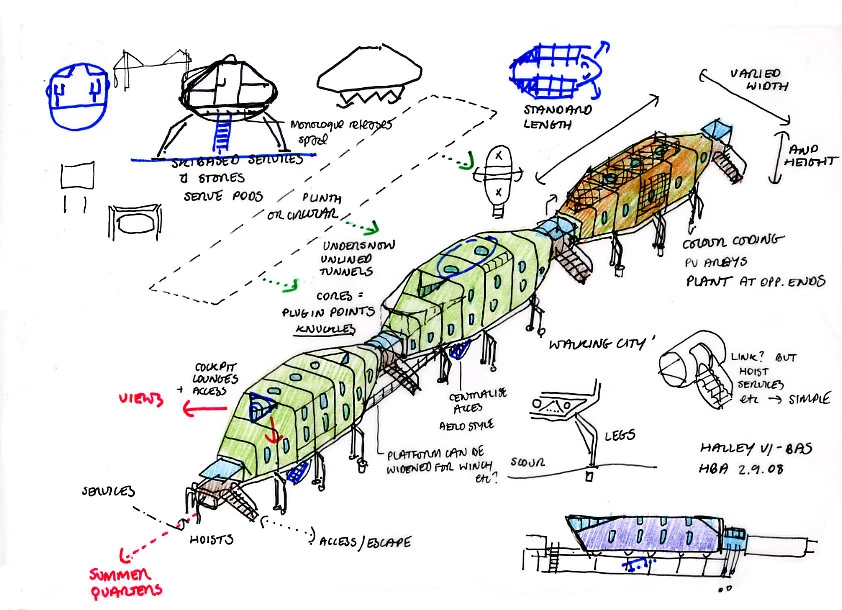 VARIED
WIDTH
STANDARD
LENGTH
AND
HEIGHT
SERVICES
& STORES
SERVE PODS
PLINTH
OR CIRCULAR
UNDERSNOW
UNLINED
TUNNELS
CORES =
PLUG IN POINTS
KNUCKLES
COLOUR CODING
PV ARRAYS
PLANT AT OPP. ENDS
'WALKING CITY'
COCKPIT
LOUNGES
+ ACCESS
VIEWS
CENTRALISE
ACCESS
AERO STYLE
LINK? BUT
HOIST
SERVICES
etc → SIMPLE
LEGS
PLATFORM CAN BE
WIDENED FOR WINCH
etc?
SCOUR
HALLEY VI - BAS
HBA 2.9.08
SERVICES
HOISTS
ACCESS/ESCAPE
SUMMER
QUARTERS